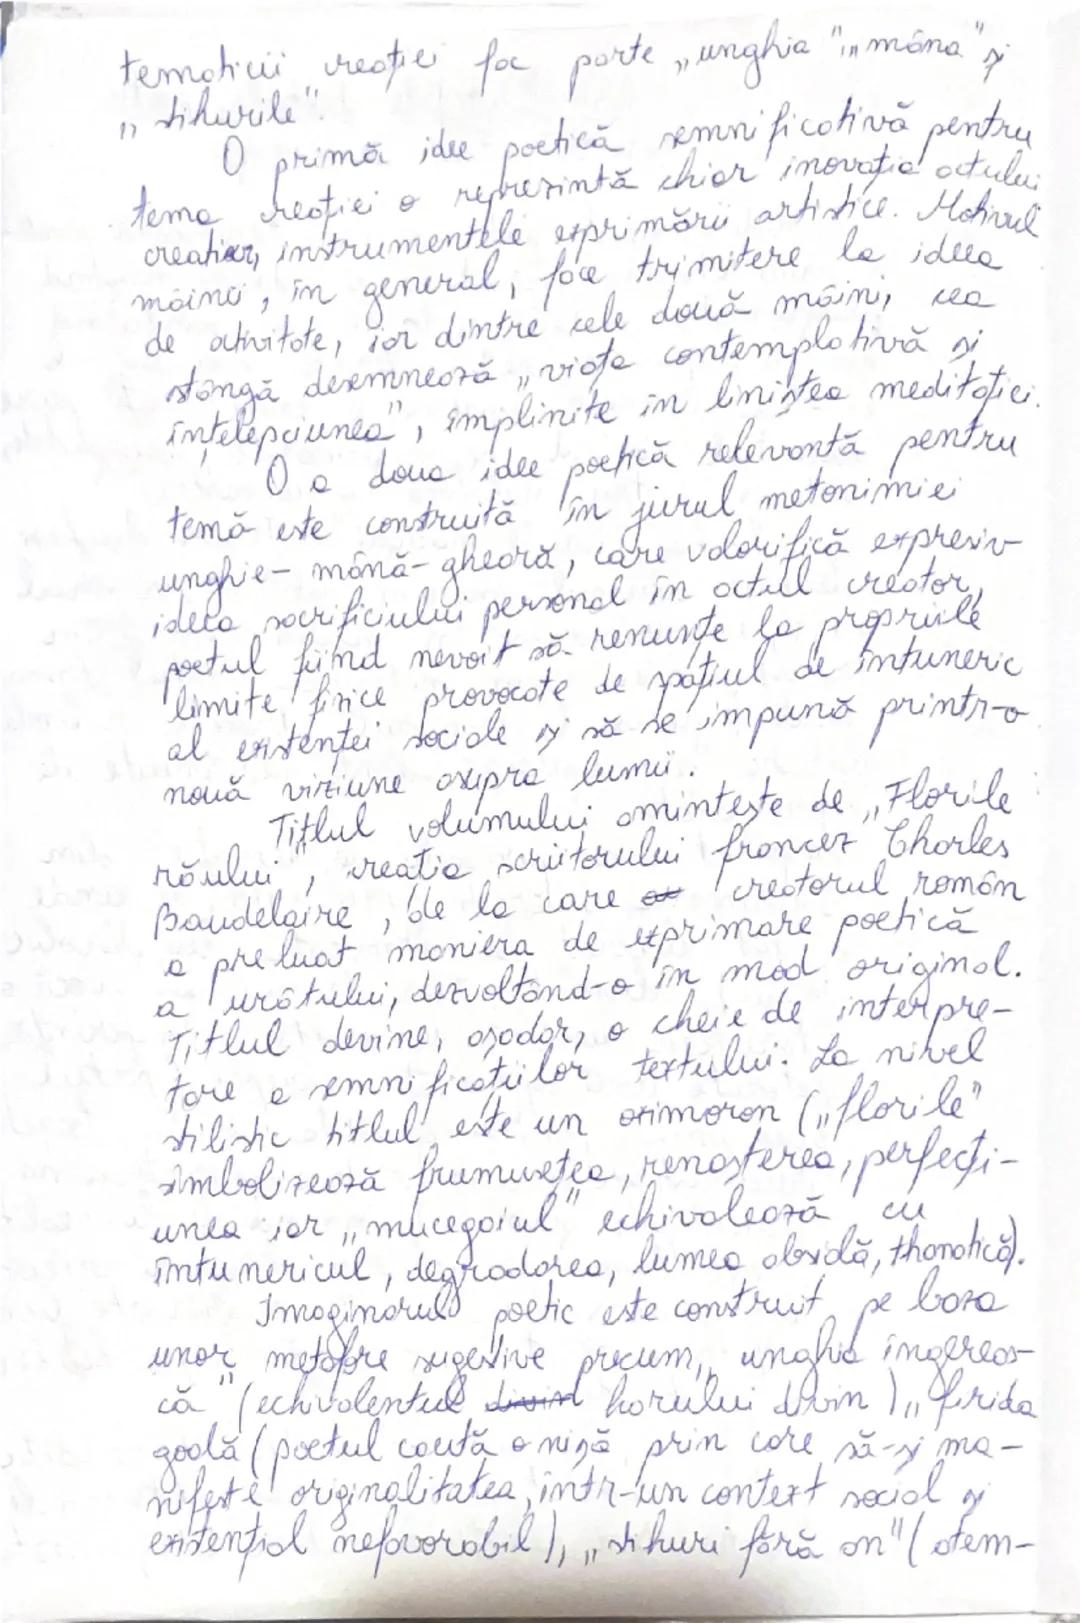 tematicii creației fac parte „unghia", „mâna" și
„stihurile".
O primă idee poetică semnificativă pentru
tema creației o reprezintă chiar inovația actului
creator, instrumentele exprimării artistice. Motivul
mâinii, în general, face trimitere la ideea
de activitate, iar dintre cele două mâini, cea
stângă desemnează „viața contemplativă și
înțelepciunea", împlinite în liniștea meditației.
O a doua idee poetică relevantă pentru
temă este construită în jurul metonimiei
unghie-mână-gheară, care valorifică expresiv
ideea sacrificiului personal în actul creator,
poetul fiind nevoit să renunțe la propriile
limite fizice provocate de spațiul de întuneric
al existenței sociale și să se impună printr-o
nouă viziune asupra lumii.
Titlul volumului amintește de „Florile
răului", creația scriitorului francez Charles
Baudelaire, de la care creatorul român
a preluat maniera de exprimare poetică
a urâtului, dezvoltând-o în mod original.
Titlul devine, așadar, o cheie de interpre-
tare a semnificațiilor textului. La nivel
stilistic titlul este un oximoron („florile"
simbolizează frumusețea, renașterea, perfecți-
unea iar „mucegaiul" echivalează cu
întunericul, degradarea, lumea absidă, thanatică).
Imaginarul poetic este construit pe baza
unor metafore sugestive precum „unghia îngereas-
că" (echivalentul harului divin), „firida
goală (poetul caută o nișă prin care să-și ma-
nifeste originalitatea, într-un context social și
existențial nefavorabil), „stihuri fără an" (atem-